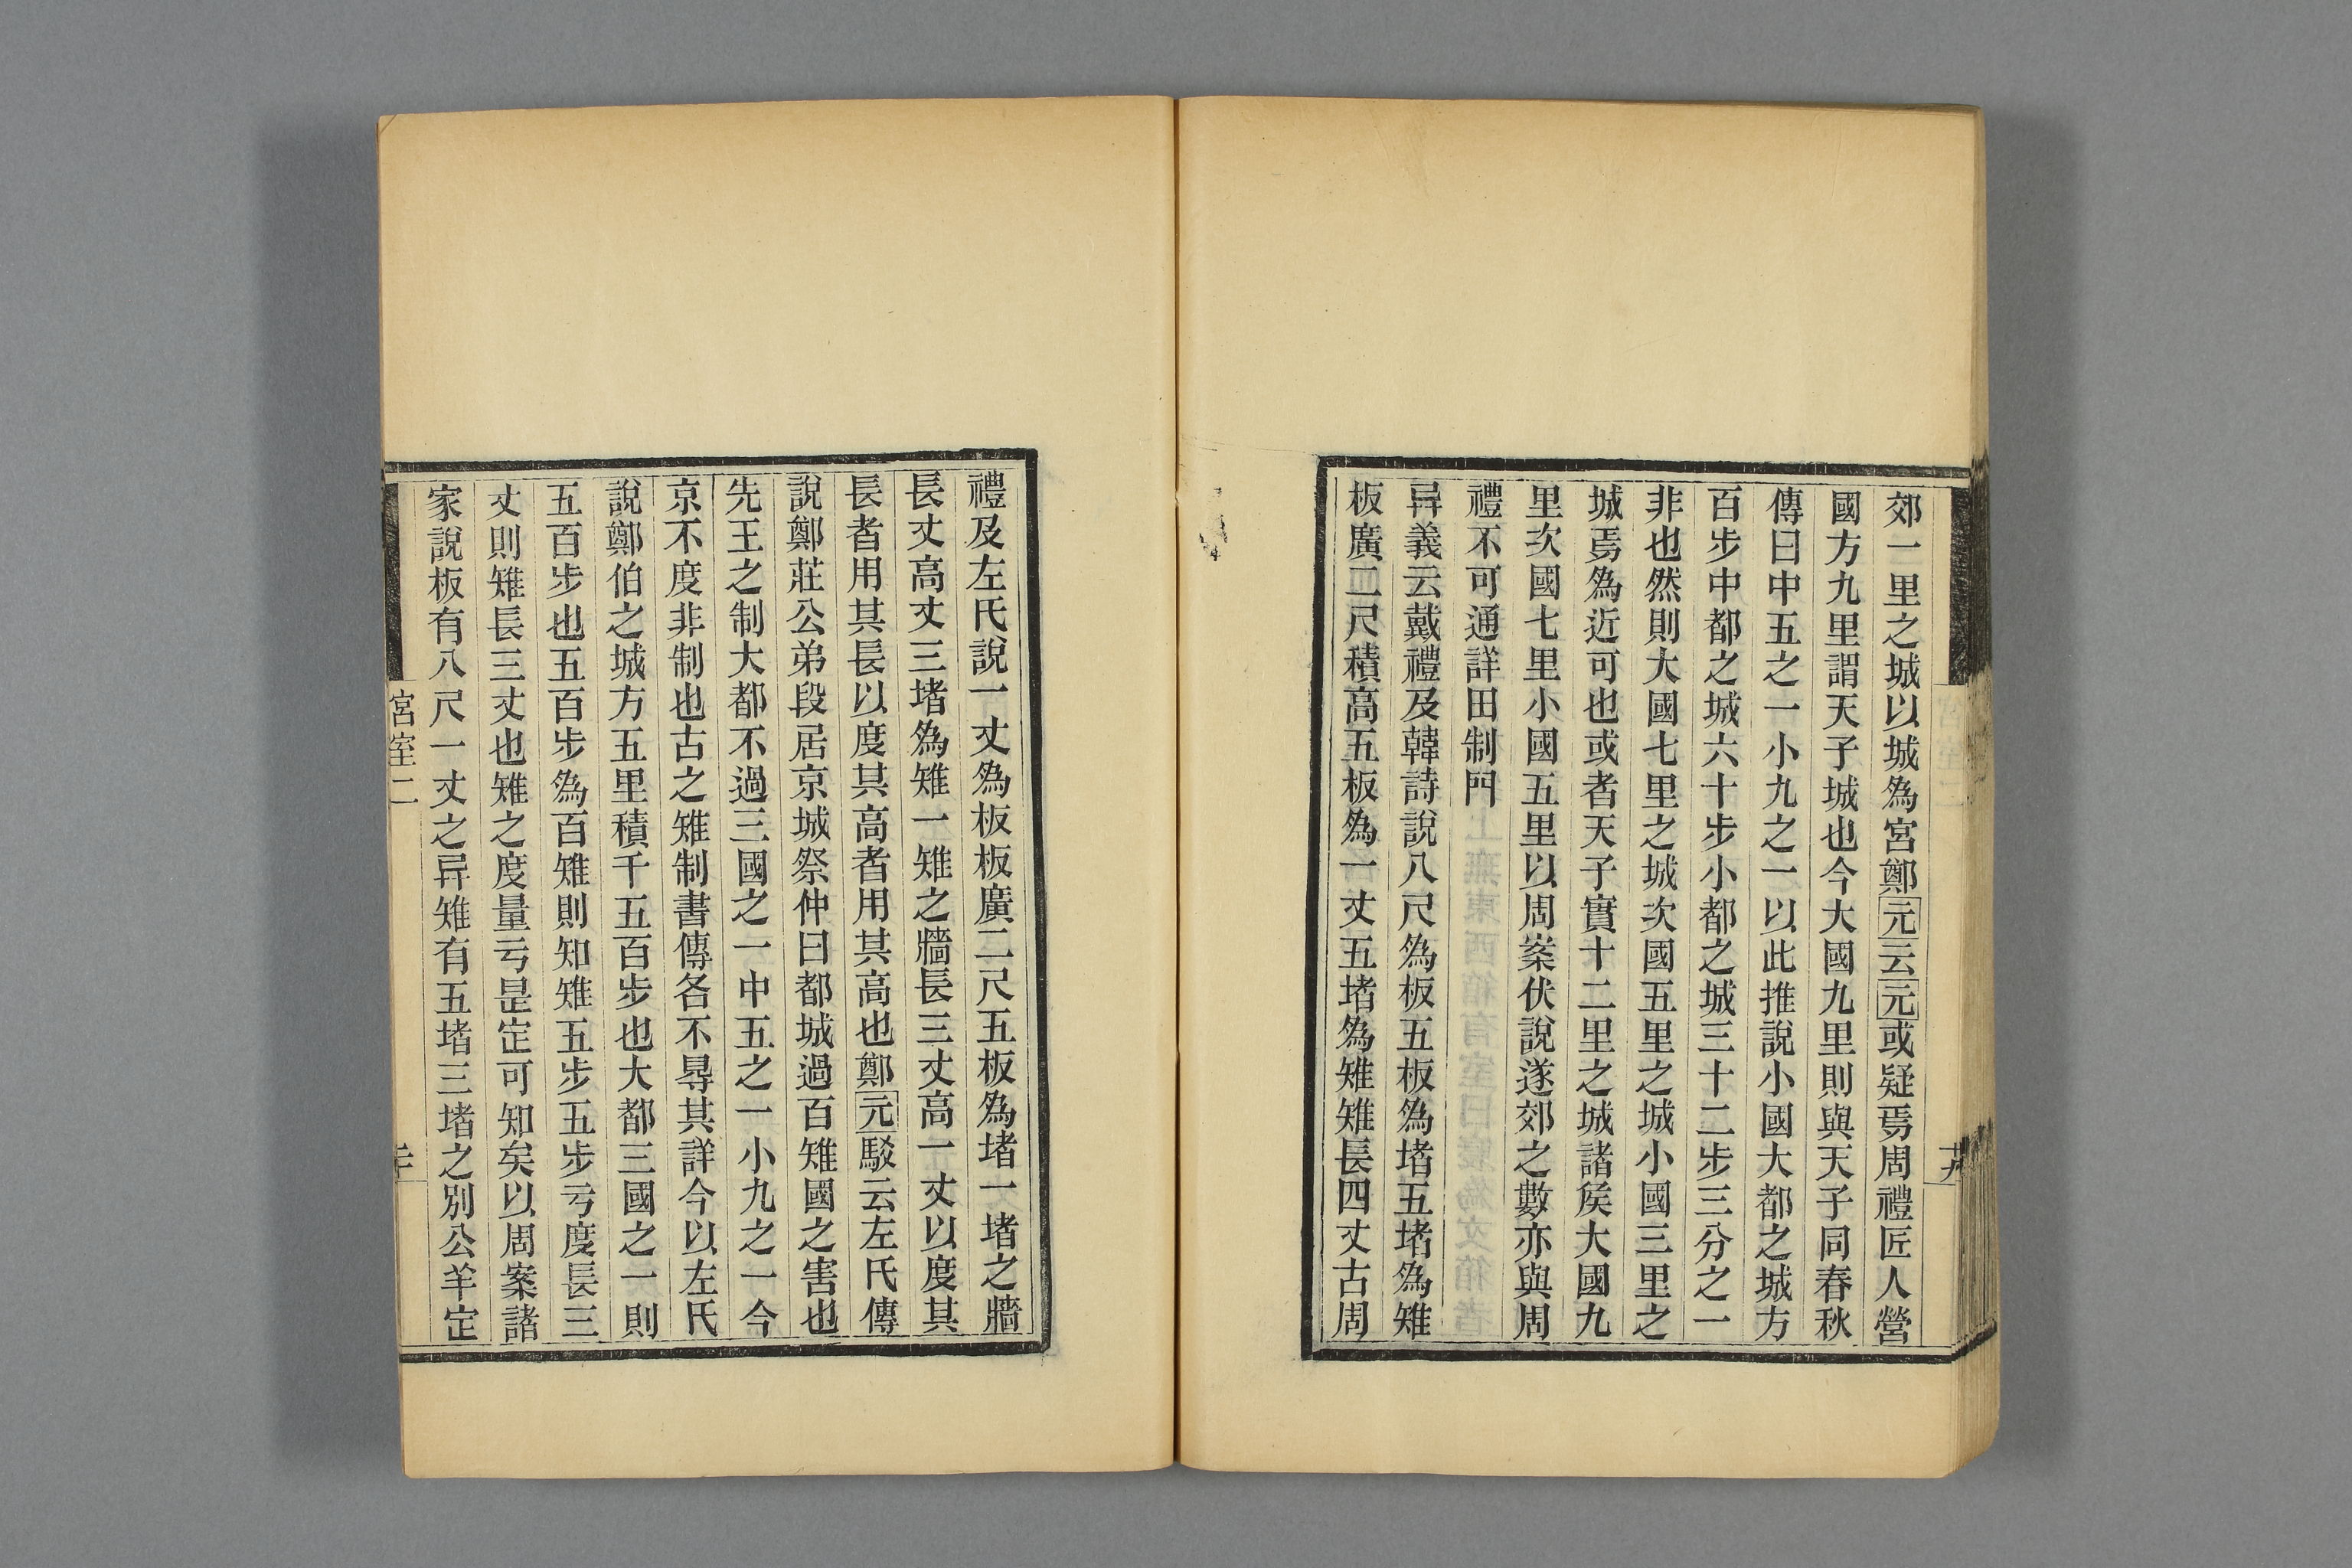 郊一里之城以城為宮鄭元云元或疑焉周禮匠人營
國方九里謂天子城也今大國九里則與天子同春秋
傳曰中五之一小九之一以此推說小國大都之城方
百步中都之城六十步小都之城三十二步三分之一
非也然則大國七里之城次國五里之城小國三里之
城焉為近可也或者天子實十二里之城諸矦大國九
里次國七里小國五里以周案伏說遂郊之數亦與周
禮不可通詳田制門
异義云戴禮及韓詩說八尺為板五板為堵五堵為雉
板廣二尺積高五板為一丈五堵為雉雉長四丈古周
禮及左氏說一丈為板板廣二尺五板為堵一堵之牆
長丈高丈三堵為雉一雉之牆長三丈高一丈以度其
長者用其長以度其高者用其高也鄭元駁云左氏傳
說鄭莊公弟段居京城祭仲曰都城過百雉國之害也
先王之制大都不過三國之一中五之一小九之一今
京不度非制也古之雉制書傳各不㝵其詳今以左氏
說鄭伯之城方五里積千五百步也大都三國之一則
五百步也五百步為百雉則知雉五步五步亏度長三
丈則雉長三丈也雉之度量亏是定可知矣以周案諸
家說板有八尺一丈之异雉有五堵三堵之別公羊定
宮室二